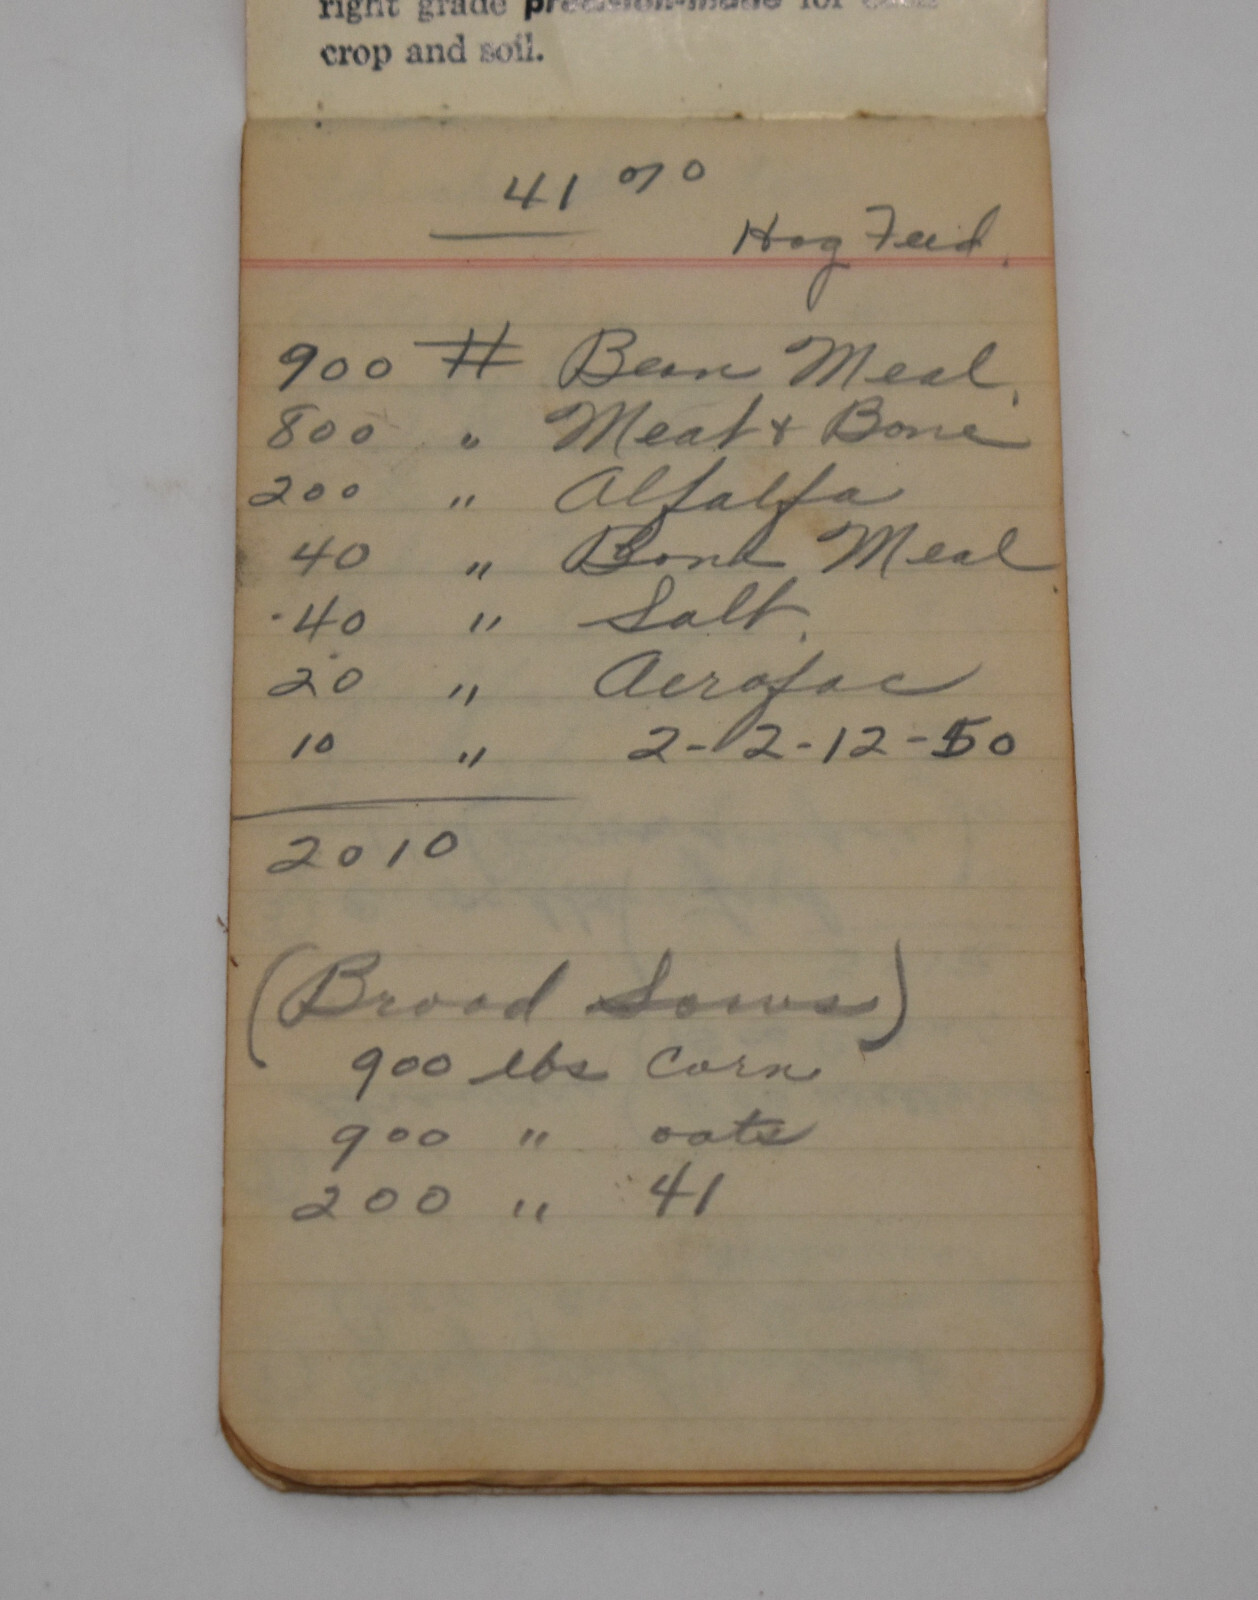 right grade precision-made for each
crop and soil.
41 %
Hog Feed.
900 # Bean Meal.
800 " Meat & Bone
200 " Alfalfa
40 " Bone Meal
40 " Salt.
20 " Aerofac
10 " 2-2-12-50
2010
(Brood Sows)
900 lbs Corn
900 " oats
200 " 41